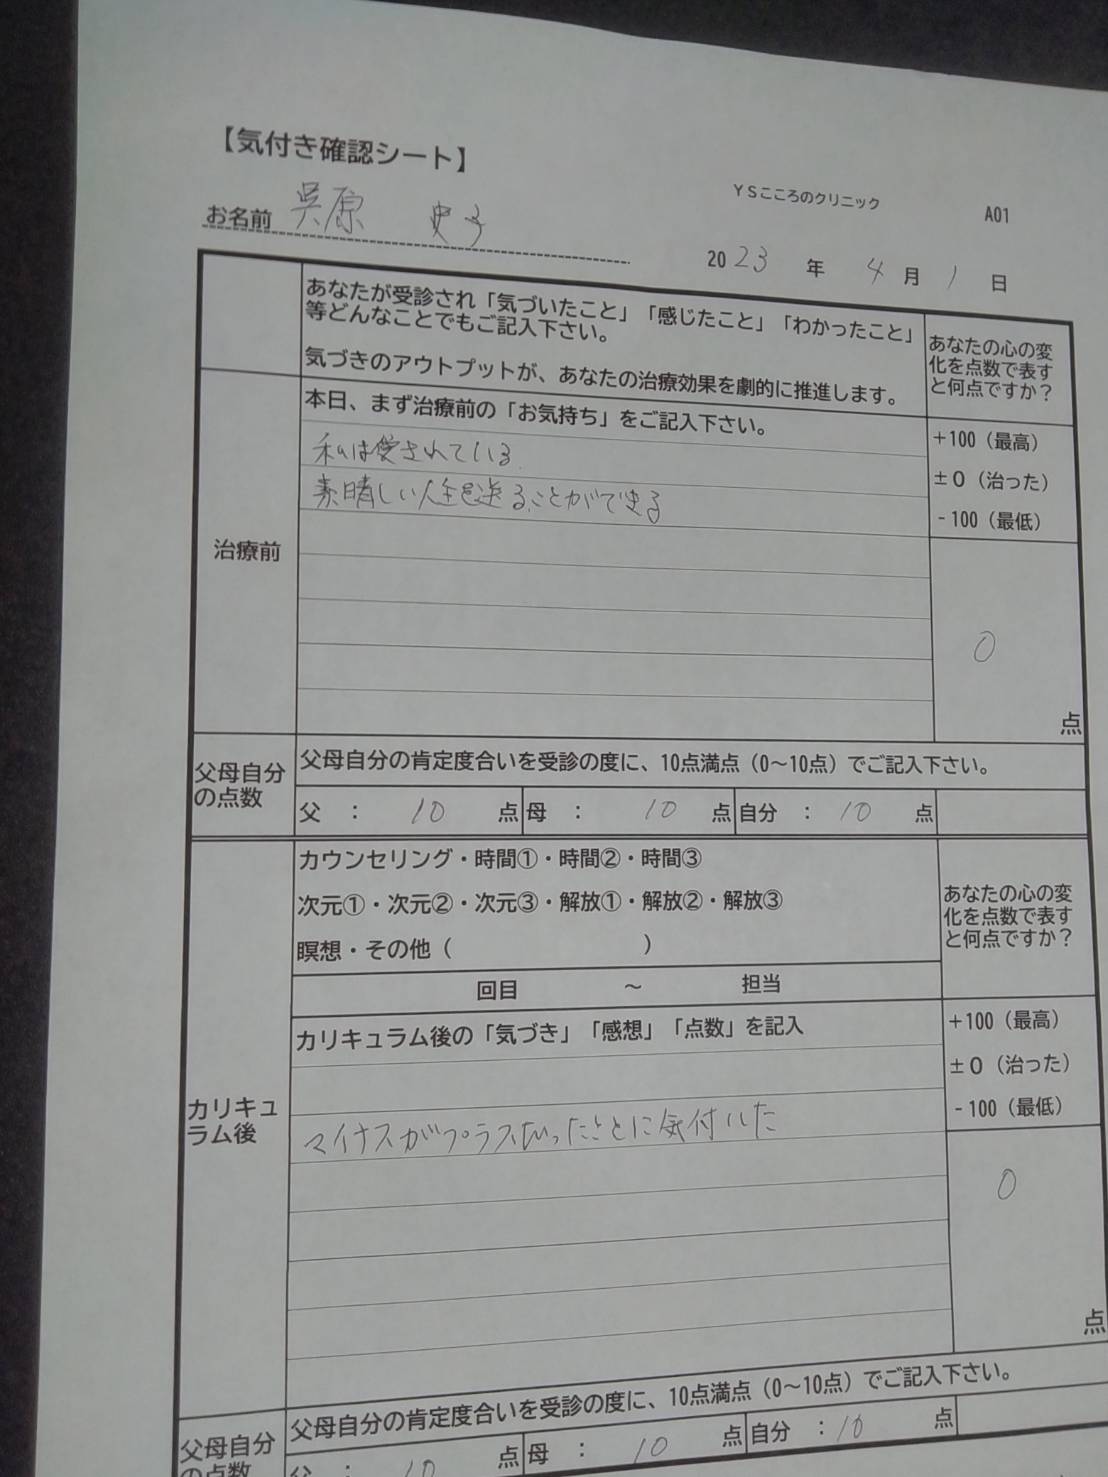 【気付き確認シート】
お名前 呉原 史子
YSこころのクリニック
A01
2023年 4月 1日
あなたが受診され「気づいたこと」「感じたこと」「わかったこと」
等どんなことでもご記入下さい。
気づきのアウトプットが、あなたの治療効果を劇的に推進します。
あなたの心の変
化を点数で表す
と何点ですか？
治療前
本日、まず治療前の「お気持ち」をご記入下さい。
私は愛されている
素晴しい人生を送ることができる
+100（最高）
±0（治った）
-100（最低）
0
点
父母自分
の点数
父母自分の肯定度合いを受診の度に、10点満点（0～10点）でご記入下さい。
父 ： 10 点 母 ： 10 点 自分 ： 10 点
カリキュ
ラム後
カウンセリング・時間①・時間②・時間③
次元①・次元②・次元③・解放①・解放②・解放③
瞑想・その他（ ）
回目 ～ 担当
あなたの心の変
化を点数で表す
と何点ですか？
カリキュラム後の「気づき」「感想」「点数」を記入
マイナスがプラスだったことに気付いた
+100（最高）
±0（治った）
-100（最低）
0
点
父母自分
の点数
父母自分の肯定度合いを受診の度に、10点満点（0～10点）でご記入下さい。
父 ： 10 点 母 ： 10 点 自分 ： 10 点